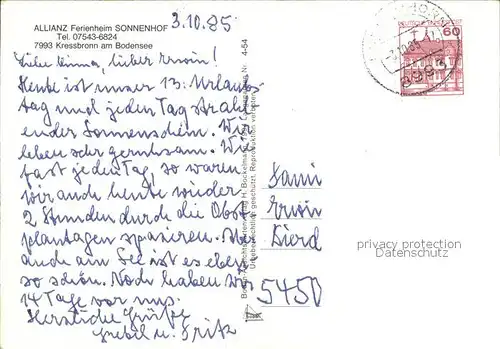 ALLIANZ Ferienheim SONNENHOF
Tel. 07543-6824
7993 Kressbronn am Bodensee
3.10.85
Liebe Emma, lieber Erwin!
Heute ist unser 13. Urlaubs-
tag und jeden Tag strahl-
ender Sonnenschein. Wir
leben sehr geruhsam. Wie
fast jeden Tag, so waren
wir auch heute wieder
2 Stunden durch die Obst-
plantagen spazieren. Aber
auch am See ist es eben
so schön. Noch haben wir
14 Tage vor uns.
Herzliche Grüße
u. Fritz
4-54
Urheberrechtlich geschützt. Reproduktion verboten.
60
7993
Erwin
5450
privacy protection
Datenschutz